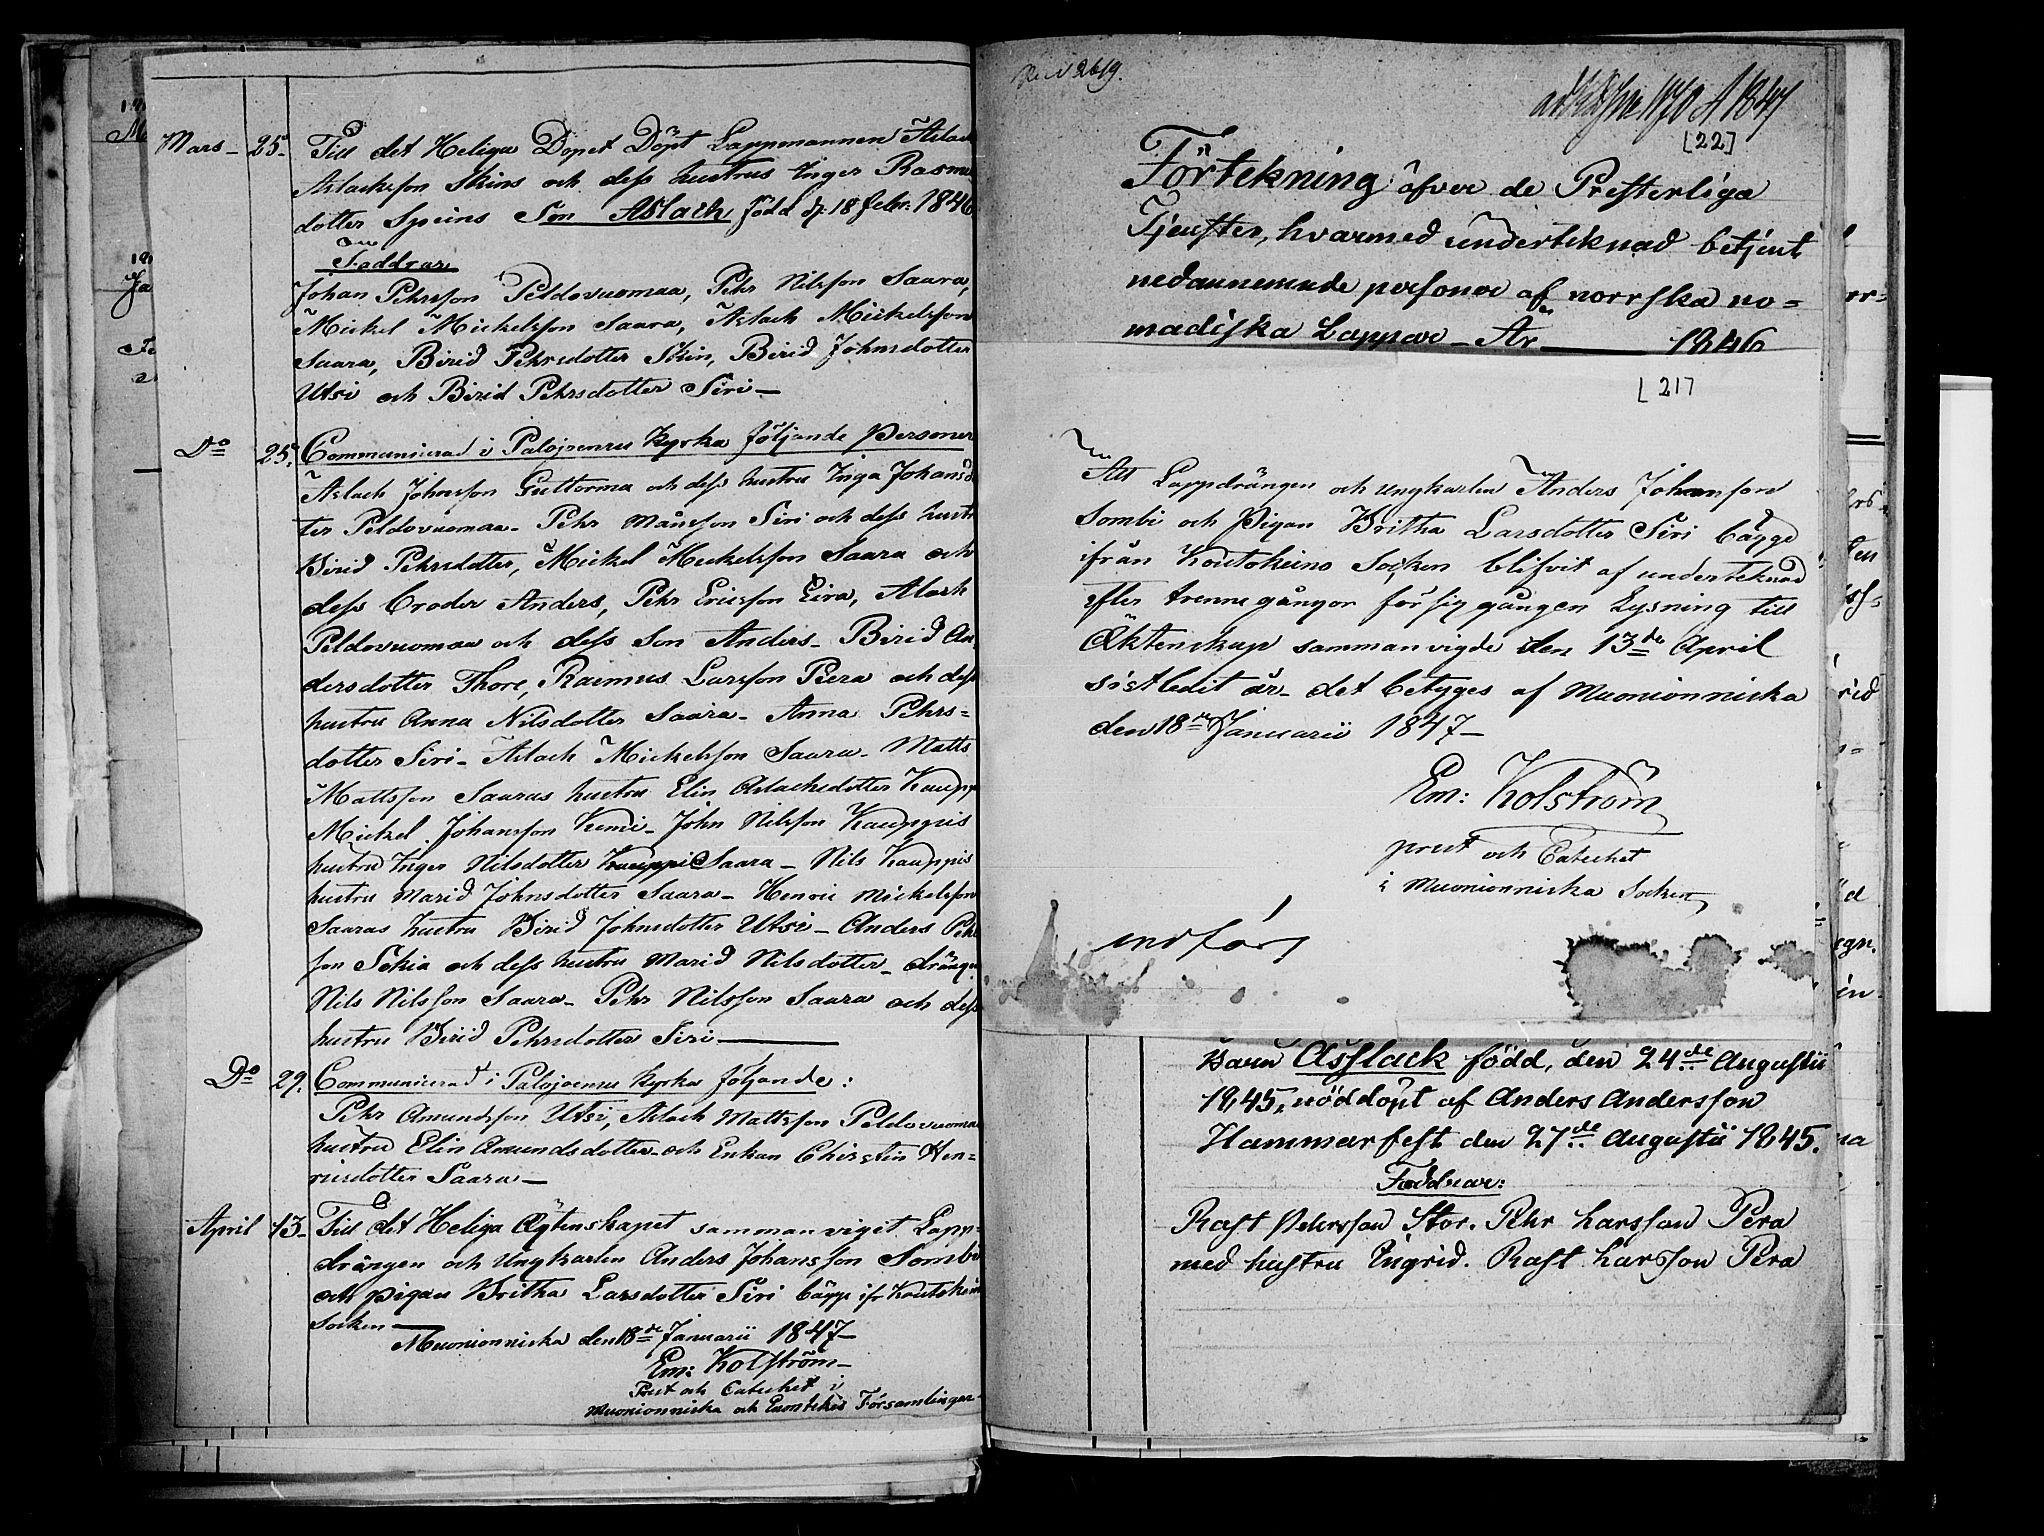 Mars - 25. Till det Heliga Dopet Döpt Lappmannen Aslack
Aslacksson Skins och dess hustrus Inger Rasmus
dotter Speins Son Aslack född d. 18 febr: 1846
Faddrar
Johan Pehrsson Peldovuomaa, Pehr Nilsson Saara,
Mickel Mickelsson Saara, Aslach Mickelsson
Saara, Birid Pehrsdotter Skin, Birid Johnsdotter
Utsi och Birid Pehrsdotter Siri -
Do 25. Communicerad i Palojoensu Kyrka följande Personer
Aslach Johnsson Guttorma och dess hustru Inga Johansd
ter Peldovuomaa - Pehr Månsson Siri och dess hustr
Birid Pehrsdotter, Mickel Mickelsson Saara och
dess broder Anders, Pehr Ericsson Eira, Aslach
Peldovuomaa och dess Son Anders - Birid An
dersdotter Thore, Rasmus Larsson Piera och dess
hustru Anna Nilsdotter Saara - Anna Pehrs=
dotter Siri - Aslach Mickelsson Saara - Matts
Mattsson Saaras hustru Elin Aslachsdotter Kaupp
Mickel Johansson Kemi - John Nilsson Kauppis
hustru Inger Nilsdotter Kauppi Saara - Nils Kauppis
hustru Marid Johnsdotter Saara - Henric Mickelsson
Saaras hustru Birid Johnsdotter Utsi - Anders Pehr
son Sokia och dess hustru Marid Nilsdotter - dränge
Nils Nilsson Saara - Pehr Nilsson Saara och dess
hustru Birid Pehrsdotter Siri -
Do 29. Communicerad i Palojoensu Kyrka följande:
Pehr Amundsson Utsi, Aslach Mattsson Peldovuoma
hustru Elin Amundsdotter - och Enkan Christin Hen=
ricsdotter Saara -
April 13 - Till det Heliga Ägtenskapet sammanviget Lapp=
drängen och Ungkarlen Anders Johansson Sombi
och pigan Britha Larsdotter Siri bägge ifr Koutokeino
Socken -
Muonionniska den 18de Januarii 1847 -
Em: Kolström -
Prest och Catechet i
Muonionniska och Enontekis Församlingar -
2619.
1847
[22]
Förtekning öfver de Presterliga
Tjenster, hvarmed undertecknad betjent
nedannemnde personer af norrska no=
madiska Lappar - År 1846
[21]
Att Lappdrängen och ungkarlen Anders Johansson
Sombi och Pigan Britha Larsdotter Siri bägge
ifrån Koutokeino Socken blifvit af undertecknad
efter trenne gångor försiggången Lysning till
Äktenskap sammanvigde den 13de April
sistledit år - det betyges af Muonionniska
den 18de Januarii 1847 -
Em: Kolström
prest och Catechet
i Muonionniska Socken
indförs
Barn Asslack född, den 24de Augustii
1845, nöddöpt af Anders Andersson
Hammarfest den 27de Augustii 1845.
Faddrar:
Rast Pedersson Stor. Pehr Larsson Pera
med hustru Ingrid. Rast Larsson Pera